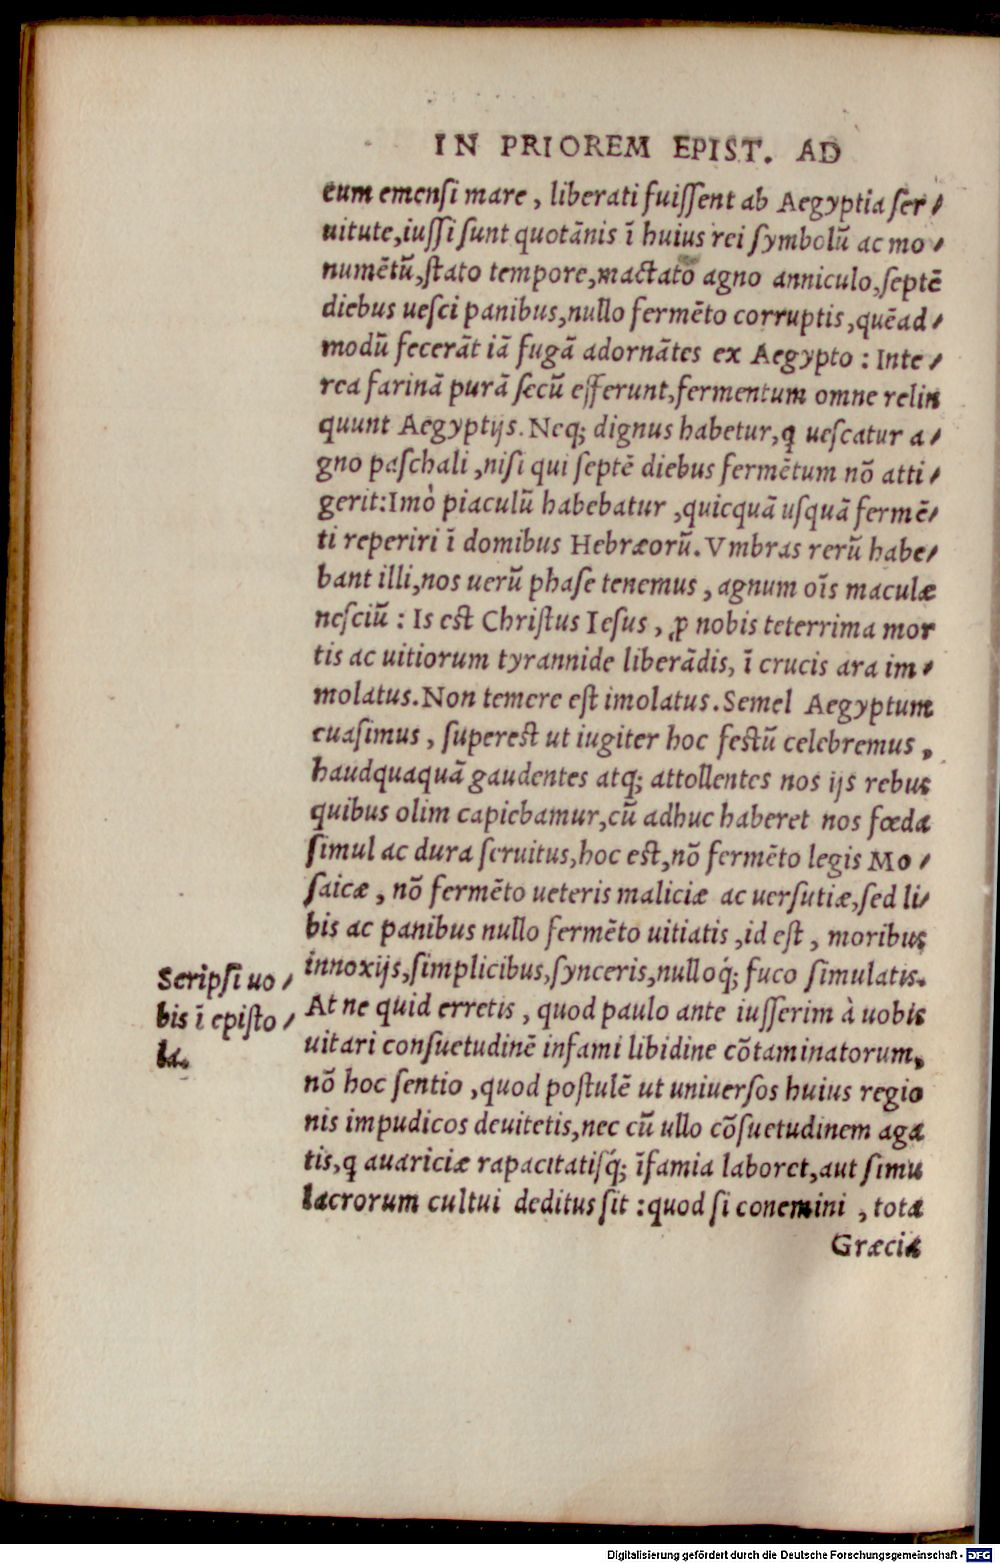 IN PRIOREM EPIST. AD
cum emenſi mare, liberati fuiſſent ab Aegyptia ſer⸗
uitute, iuſſi ſunt quotānis ī huius rei ſymbolū ac mo⸗
numētū, ſtato tempore, mactato agno anniculo, ſeptē
diebus ueſci panibus, nullo fermēto corruptis, quēad⸗
modū fecerāt iā fugā adornātes ex Aegypto : Inte⸗
rea farinā purā ſecū efferunt, fermentum omne relin
quunt Aegyptijs. Neq; dignus habetur, ꝗ ueſcatur a⸗
gno paſchali, niſi qui ſeptē diebus fermētum nō atti⸗
gerit: Imò piaculū habebatur, quicquā uſquā fermē⸗
ti reperiri ī domibus Hebræorū. Vmbras rerū habe⸗
bant illi, nos uerū phaſe tenemus, agnum oīs maculæ
neſciū : Is eſt Chriſtus Ieſus, ꝓ nobis teterrima mor
tis ac uitiorum tyrannide liberādis, ī crucis ara im⸗
molatus. Non temere eſt imolatus. Semel Aegyptum
euaſimus, ſupereſt ut iugiter hoc feſtū celebremus,
haudquaquā gaudentes atq; attollentes nos ijs rebus
quibus olim capiebamur, cū adhuc haberet nos fœda
ſimul ac dura ſeruitus, hoc eſt, nō fermēto legis Mo⸗
ſaicæ, nō fermēto ueteris maliciæ ac uerſutiæ, ſed li⸗
bis ac panibus nullo fermēto uitiatis, id eſt, moribus
innoxijs, ſimplicibus, ſynceris, nulloq́; fuco ſimulatis.
At ne quid erretis, quod paulo ante iuſſerim à uobis
uitari conſuetudinē infami libidine cōtaminatorum,
nō hoc ſentio, quod poſtulē ut uniuerſos huius regio
nis impudicos deuitetis, nec cū ullo cōſuetudinem aga
tis, ꝗ auariciæ rapacitatiſq́; īfamia laboret, aut ſimu
lacrorum cultui deditus ſit : quod ſi conemini, tota
Græcia
Scripſi uo⸗
bis ī epiſto⸗
la.
Digitalisierung gefördert durch die Deutsche Forschungsgemeinschaft - DFG